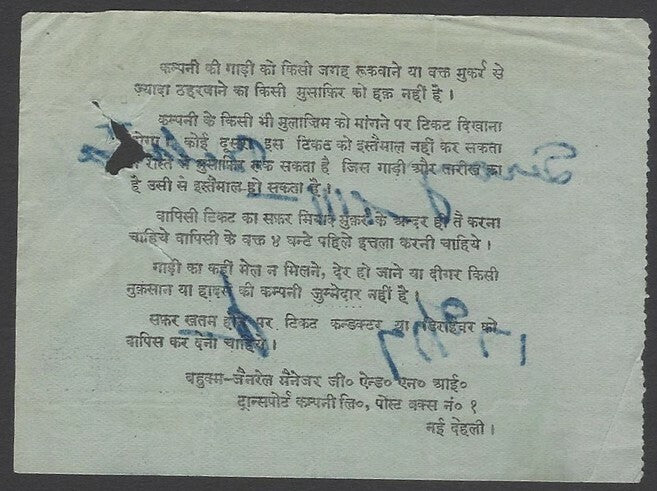 कम्पनी की गाड़ी को किसी जगह रूकवाने या वक्त मुकर्र से
ज्यादा ठहरवाने का किसी मुसाफ़िर को हक़ नहीं है ।
कम्पनी के किसी भी मुलाज़िम को मांगने पर टिकट दिखाना
कोई दूसरा इस टिकट को इस्तैमाल नहीं कर सकता
रास्ते में मुसाफ़िर रूक सकता है जिस गाड़ी और तारीख़ का
है उसी से इस्तैमाल हो सकता है ।
वापिसी टिकट का सफ़र मियाद मुक़र्र के अन्दर ही तै करना
चाहिये वापिसी के वक्त ४ घन्टे पहिले इत्तला करनी चाहिये ।
गाड़ी का कहीं मेल न मिलने, देर हो जाने या दीगर किसी
नुक़सान या हादसे की कम्पनी जुम्मेदार नहीं है ।
सफ़र ख़तम होने पर टिकट कन्डक्टर या डिराईवर को
वापिस कर देना चाहिये ।
बहुक्म-जैनरेल मैनेजर जी० ऐन्ड० एन० आई०
ट्रान्सपोर्ट कम्पनी लि०, पोस्ट बक्स नं० १
नई देहली ।